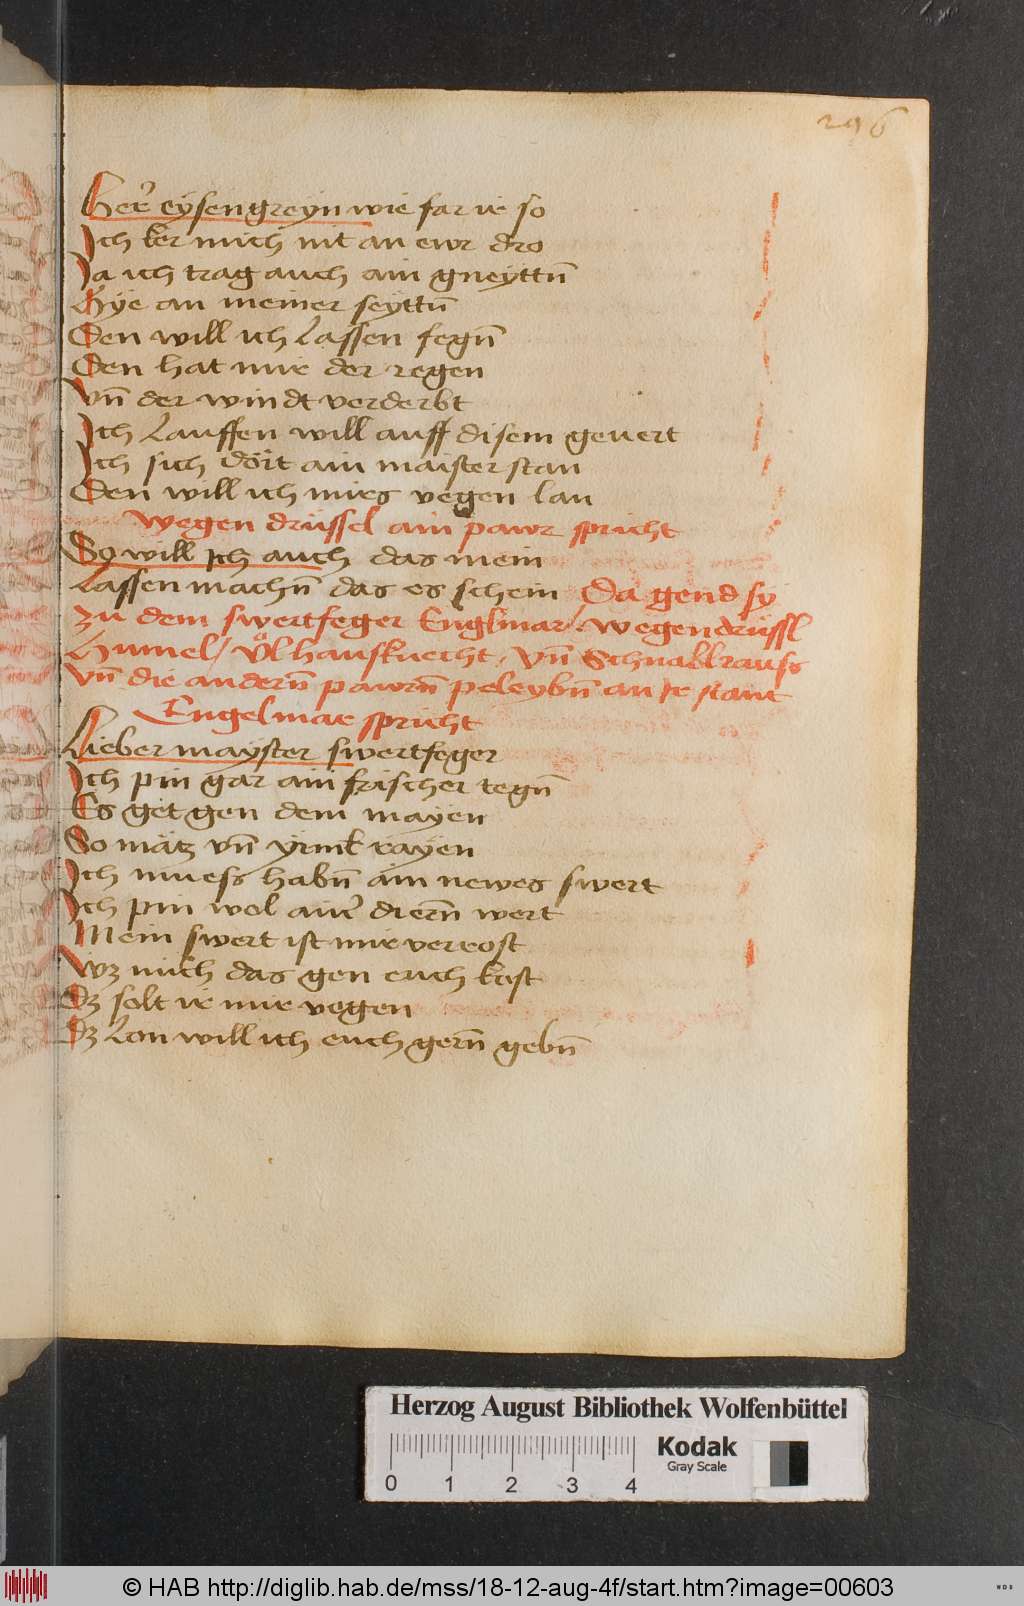 296
Her̄ eysengreyn wie far ir so
Ich ker mich nit an ewr dro
Ja ich trag auch ain gneyttn̄
Hÿe an meiner seyttn̄
Den will ich Lassen fegn̄
Den hat mir der regen
vn̄ der windt verderbt
Ich Lauffen will auff disem gevert
Ich sich dört ain maister stan
Den will ich mirs vegen lan
wegen drüssel ain pawr spricht
So will Ich auch das mein
Lassen machn̄ das es schein Da gend sy
zu dem swertfeger Englmar / wegendrüssl
Humel / Völhansknecht / vn̄ Schnablrauss
vn̄ die andern̄ pawrn̄ peleybn̄ an ir stant
Engelmar spricht
Lieber mayster swertfeger
Ich pin gar ain frischer tegn̄
Es get gen dem mayen
So mätz vn̄ yrmk rayen
Ich muess habn̄ ain newes swert
Ich pin wol ainr̄ diern̄ wert
Mein swert ist mir verrost
wz mich das gen euch kost
Dz solt ir mir vegen
Dz Lon will ich euch gern̄ gebn̄
Herzog August Bibliothek Wolfenbüttel
Kodak
Gray Scale
0 1 2 3 4
© HAB http://diglib.hab.de/mss/18-12-aug-4f/start.htm?image=00603